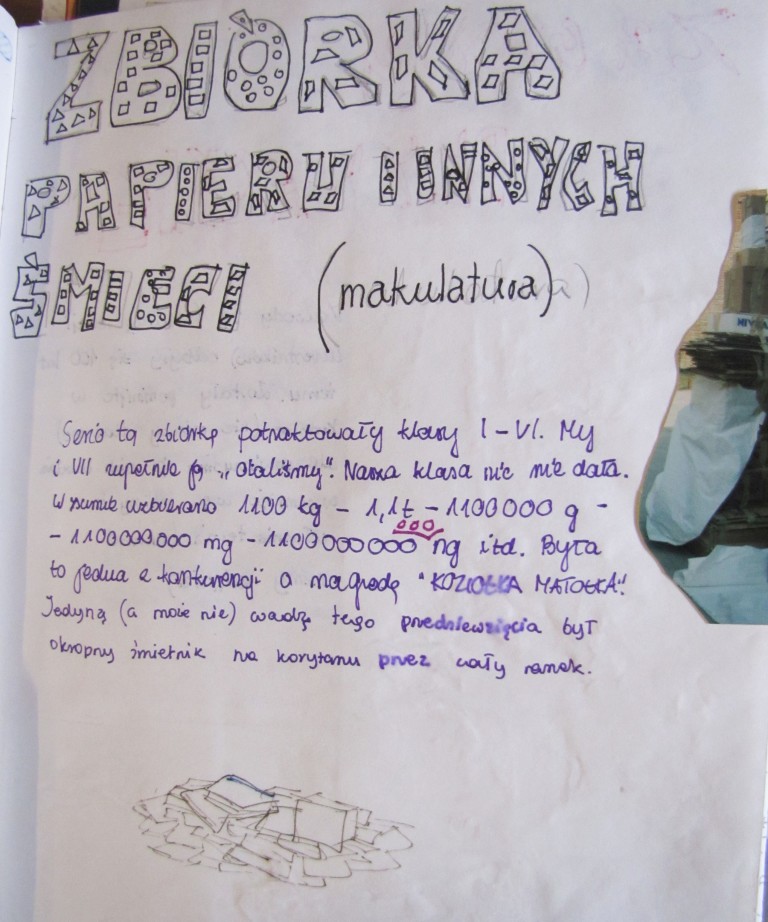 ZBIÓRKA
PAPIERU I INNYCH
ŚMIECI (makulatura)
Serio tą zbiórkę potraktowały klasy I-VI. My
i VII zupełnie ją "olaliśmy". Nasza klasa nic nie dała.
W sumie uzbierano 1100 kg - 1,1t - 1100000 g -
- 1100000000 mg - 1100000000 000 ng itd. Była
to jedna z konkurencji o nagrodę "KOZIOŁKA MATOŁKA".
Jedyną (a może nie) wadą tego przedsięwzięcia był
okropny śmietnik na korytarzu przez cały ranek.